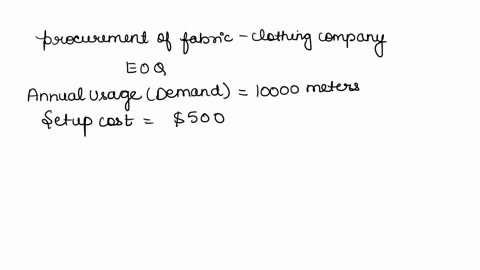 procurement of fabric - clothing company
EOQ
Annual Usage (Demand) = 10000 meters
Setup cost = $500